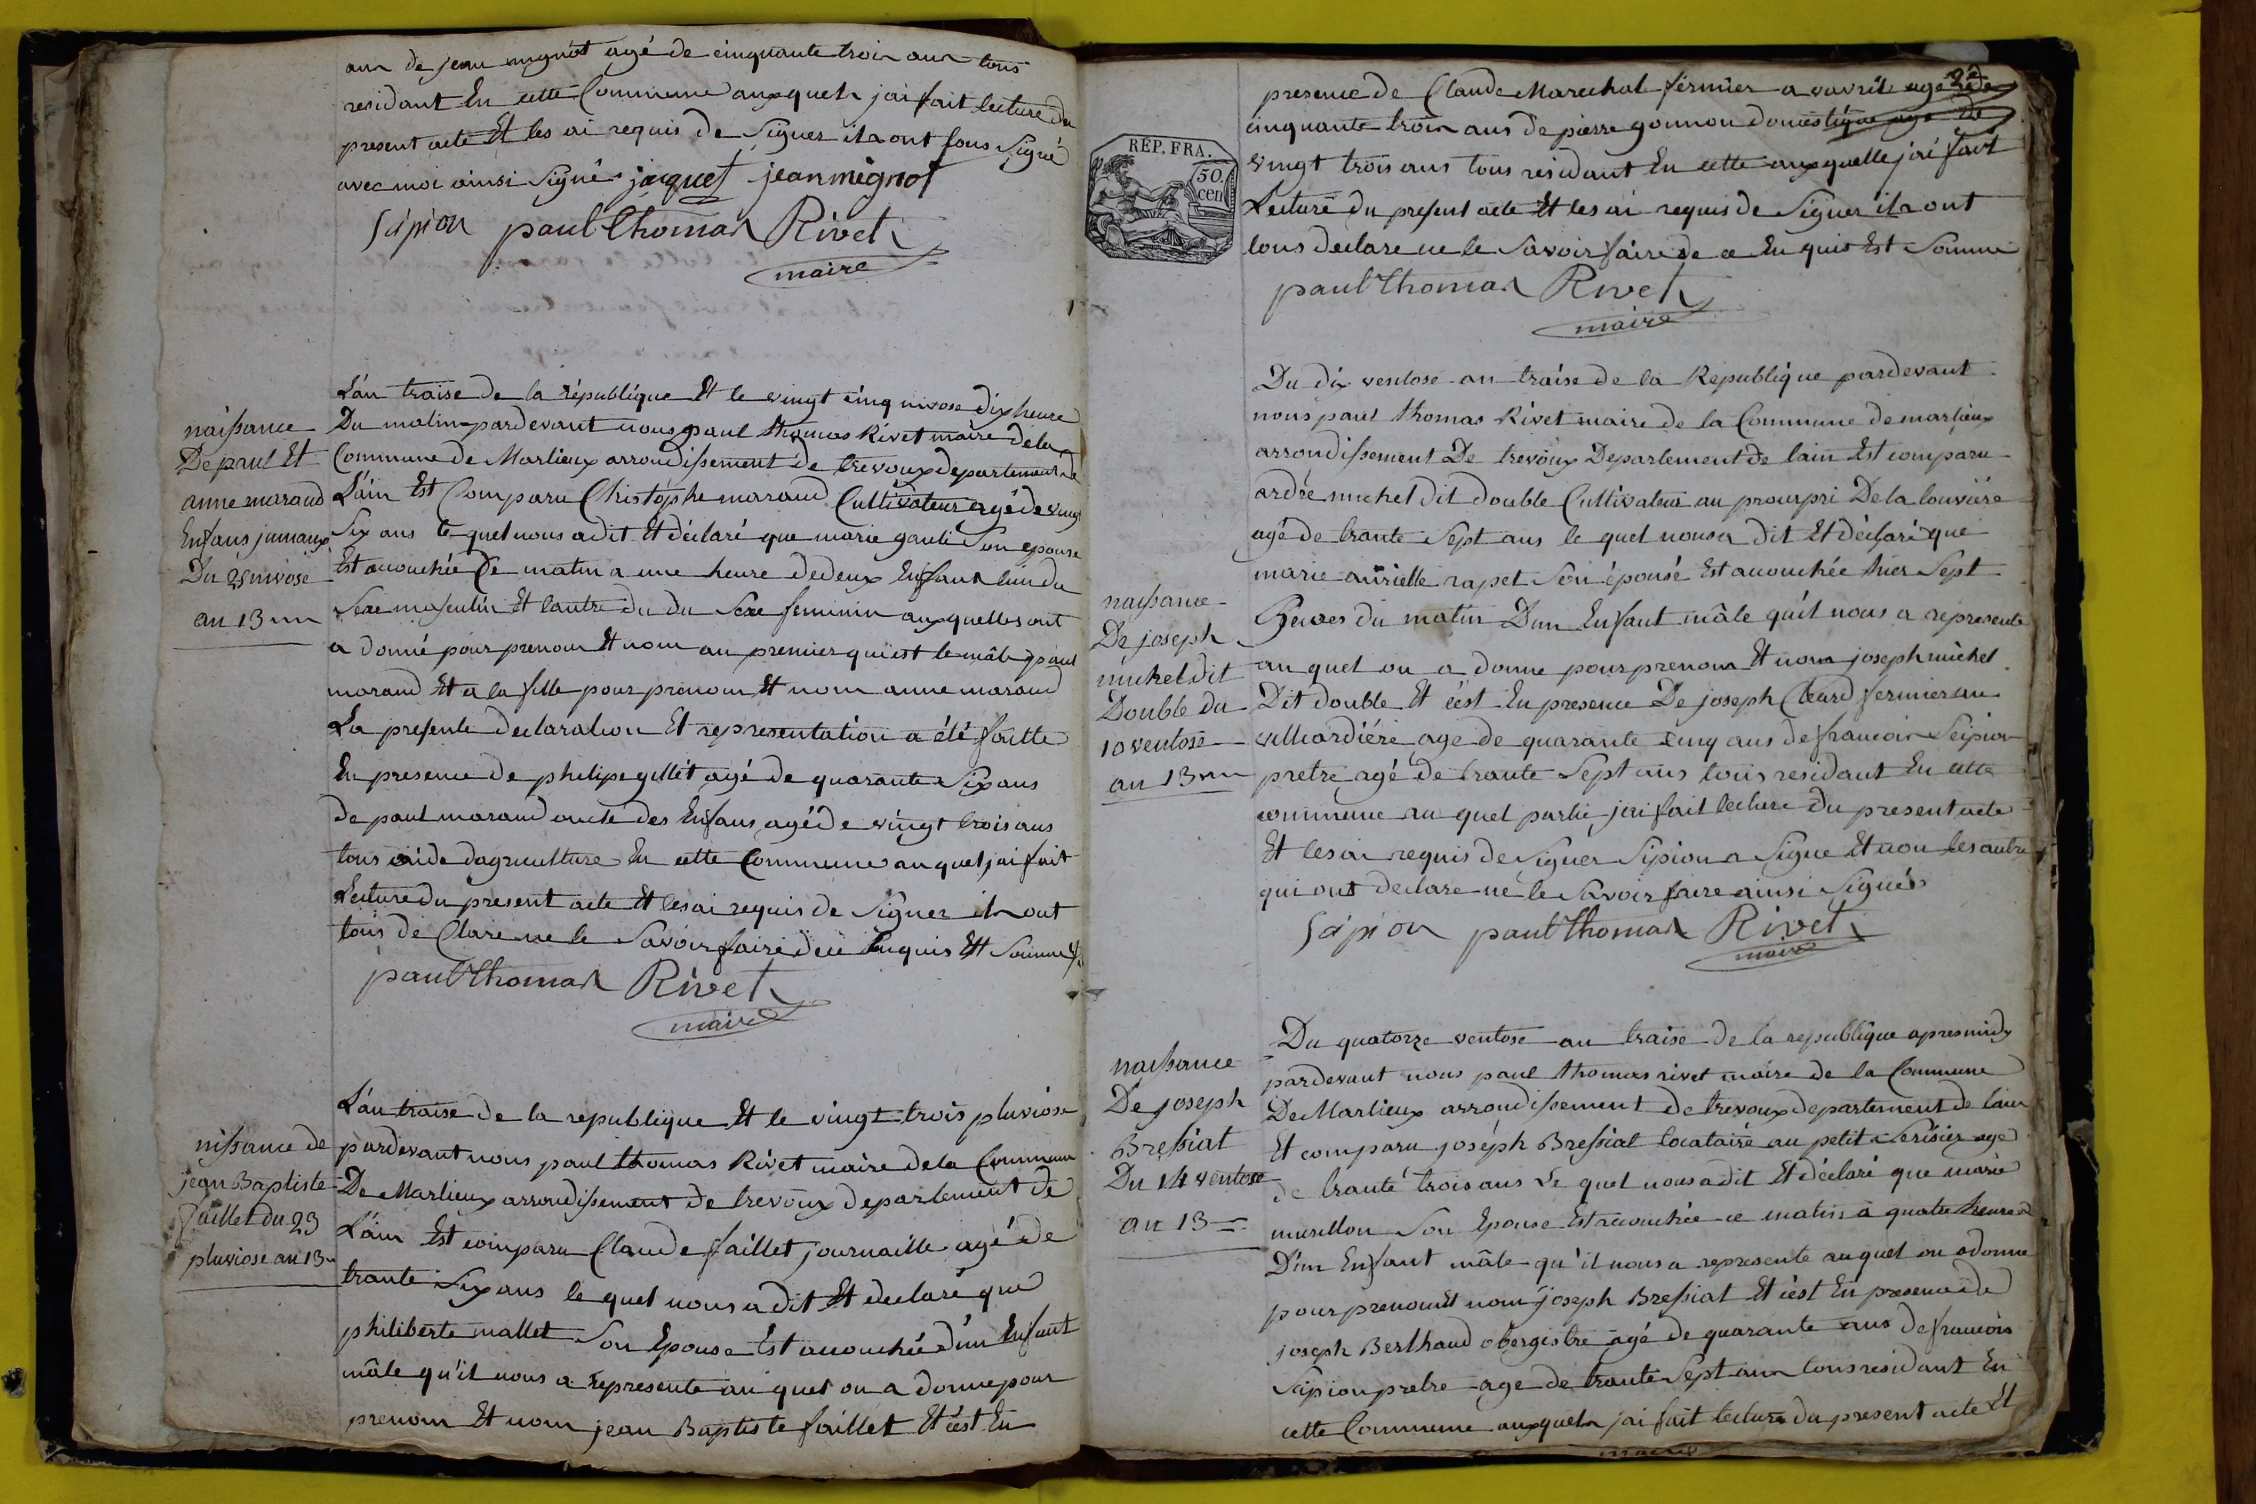 ans de jean mignot agé de cinquante trois ans tous
residant En cette Commune auxquels jai fait lecture du
present acte Et les ai requis de Signer ils ont tous Signé
avec moi ainsi Signé jaquet jean mignot
Sipion paul thomas Rivet
maire
naissance
De paul Et
anne maraud
Enfans jumaux
Du 25 nivose
an 13
L'an traise de la république Et le vingt cinq nivose dix heure
Du matin pardevant nous paul thomas Rivet maire de la
Commune de Marlieux arrondissement de trevoux departement de
L'ain Est Comparu Christophe maraud Cultivateur agé de vingt
Six ans le quel nous a dit Et déclaré que marie gauli Son epouse
Est acouchée Ce matin a une heure de deux Enfans l'un du
Sexe masculin Et lautre du du Sexe feminin auxquelles ont
a donné pour prenom Et nom au premier qui est le mâle paul
maraud Et a la fille pour prenom Et nom anne maraud
La presente declaration Et representation a été faitte
En presence de philipe gillet agé de quarante Six ans
de paul maraud oncle des Enfans agé de vingt trois ans
tous aide dagriculture En cette Commune au quel jai fait
Lecture du present acte Et les ai requis de Signer ils ont
tous de Clare ne le Savoir faire de ce Enquis Et Sommé
paul thomas Rivet
maire
nissance de
jean Baptiste
faillet du 23
pluviose an 13
L'an traise de la republique Et le vingt trois pluviose
pardevant nous paul thomas Rivet maire de la Commune
De Marlieux arrondissement de trevoux departement de
L'ain Est comparu Claude faillet journaille agé de
trante Six ans le quel nous a dit Et declaré que
philiberte mallet Son Epouse Est acouchée d'un Enfant
mâle qu'il nous a represente au quel on a donne pour
prenom Et nom jean Baptiste faillet Et c'est En
2e
presence de Claude Marechal fermier a vavril agé de
cinquante trois ans de pierre gonnon domestique age de
vingt trois ans tous residant En cette auxquelle jai fait
Lecture du present acte Et les ai requis de Signer ils ont
tous declare ne le Savoir faire de ce En quis Est Somme
REP. FRA.
50.
cen
paul thomas Rivet
maire
naissance
De joseph
michel dit
Double du
10 ventose
an 13
Du dix ventose an traise de la Republique pardevant
nous paul thomas Rivet maire de la Commune de marlieux
arrondissement De trevoux Departement de lain Est comparu
ardré michel dit double Cultivateur au pourpri De la louviére
agé de trante Sept ans le quel nous a dit Et déclaré que
marie aurielle rapet Son épousé Est acouchée hier Sept
heures du matin D'un Enfant mâle quil nous a represente
au quel on a donne pour prenom Et nom joseph michel
Dit double Et c'est En presence De joseph Cleard fermier au
villiardiére age de quarante cinq ans de francois Scipion
pretre agé de trante Sept ans tous residant En cette
commune au quel partie jai fait lecture du present acte
Et les ai requis de Signer Sipion a Signe Et non les autre
qui ont declare ne le Savoir faire ainsi Signés
Sipion paul thomas Rivet
maire
naissance
De joseph
Bressiat
Du 14 ventose
an 13
Du quatorze ventose an traise de la republique apres midy
pardevant nous paul thomas rivet maire de la Commune
De Marlieux arrondissement de trevoux departement de lain
Et comparu joséph Bressiat locataire au petit Serisier age
de trante trois ans Le quel nous a dit Et déclaré que marie
murillon Son Epouse Est acouchée ce matin à quatre heures
D'un Enfant mâle qu'il nous a represente auquel on a donne
pour prenom Et nom joseph Bressiat Et c'est En presence de
joseph Berthaud obergistre agé de quarante ans de francois
Scipion pretre age de trante Sept ans tous residant En
cette Commune auxquels jai fait lecture du present acte Et